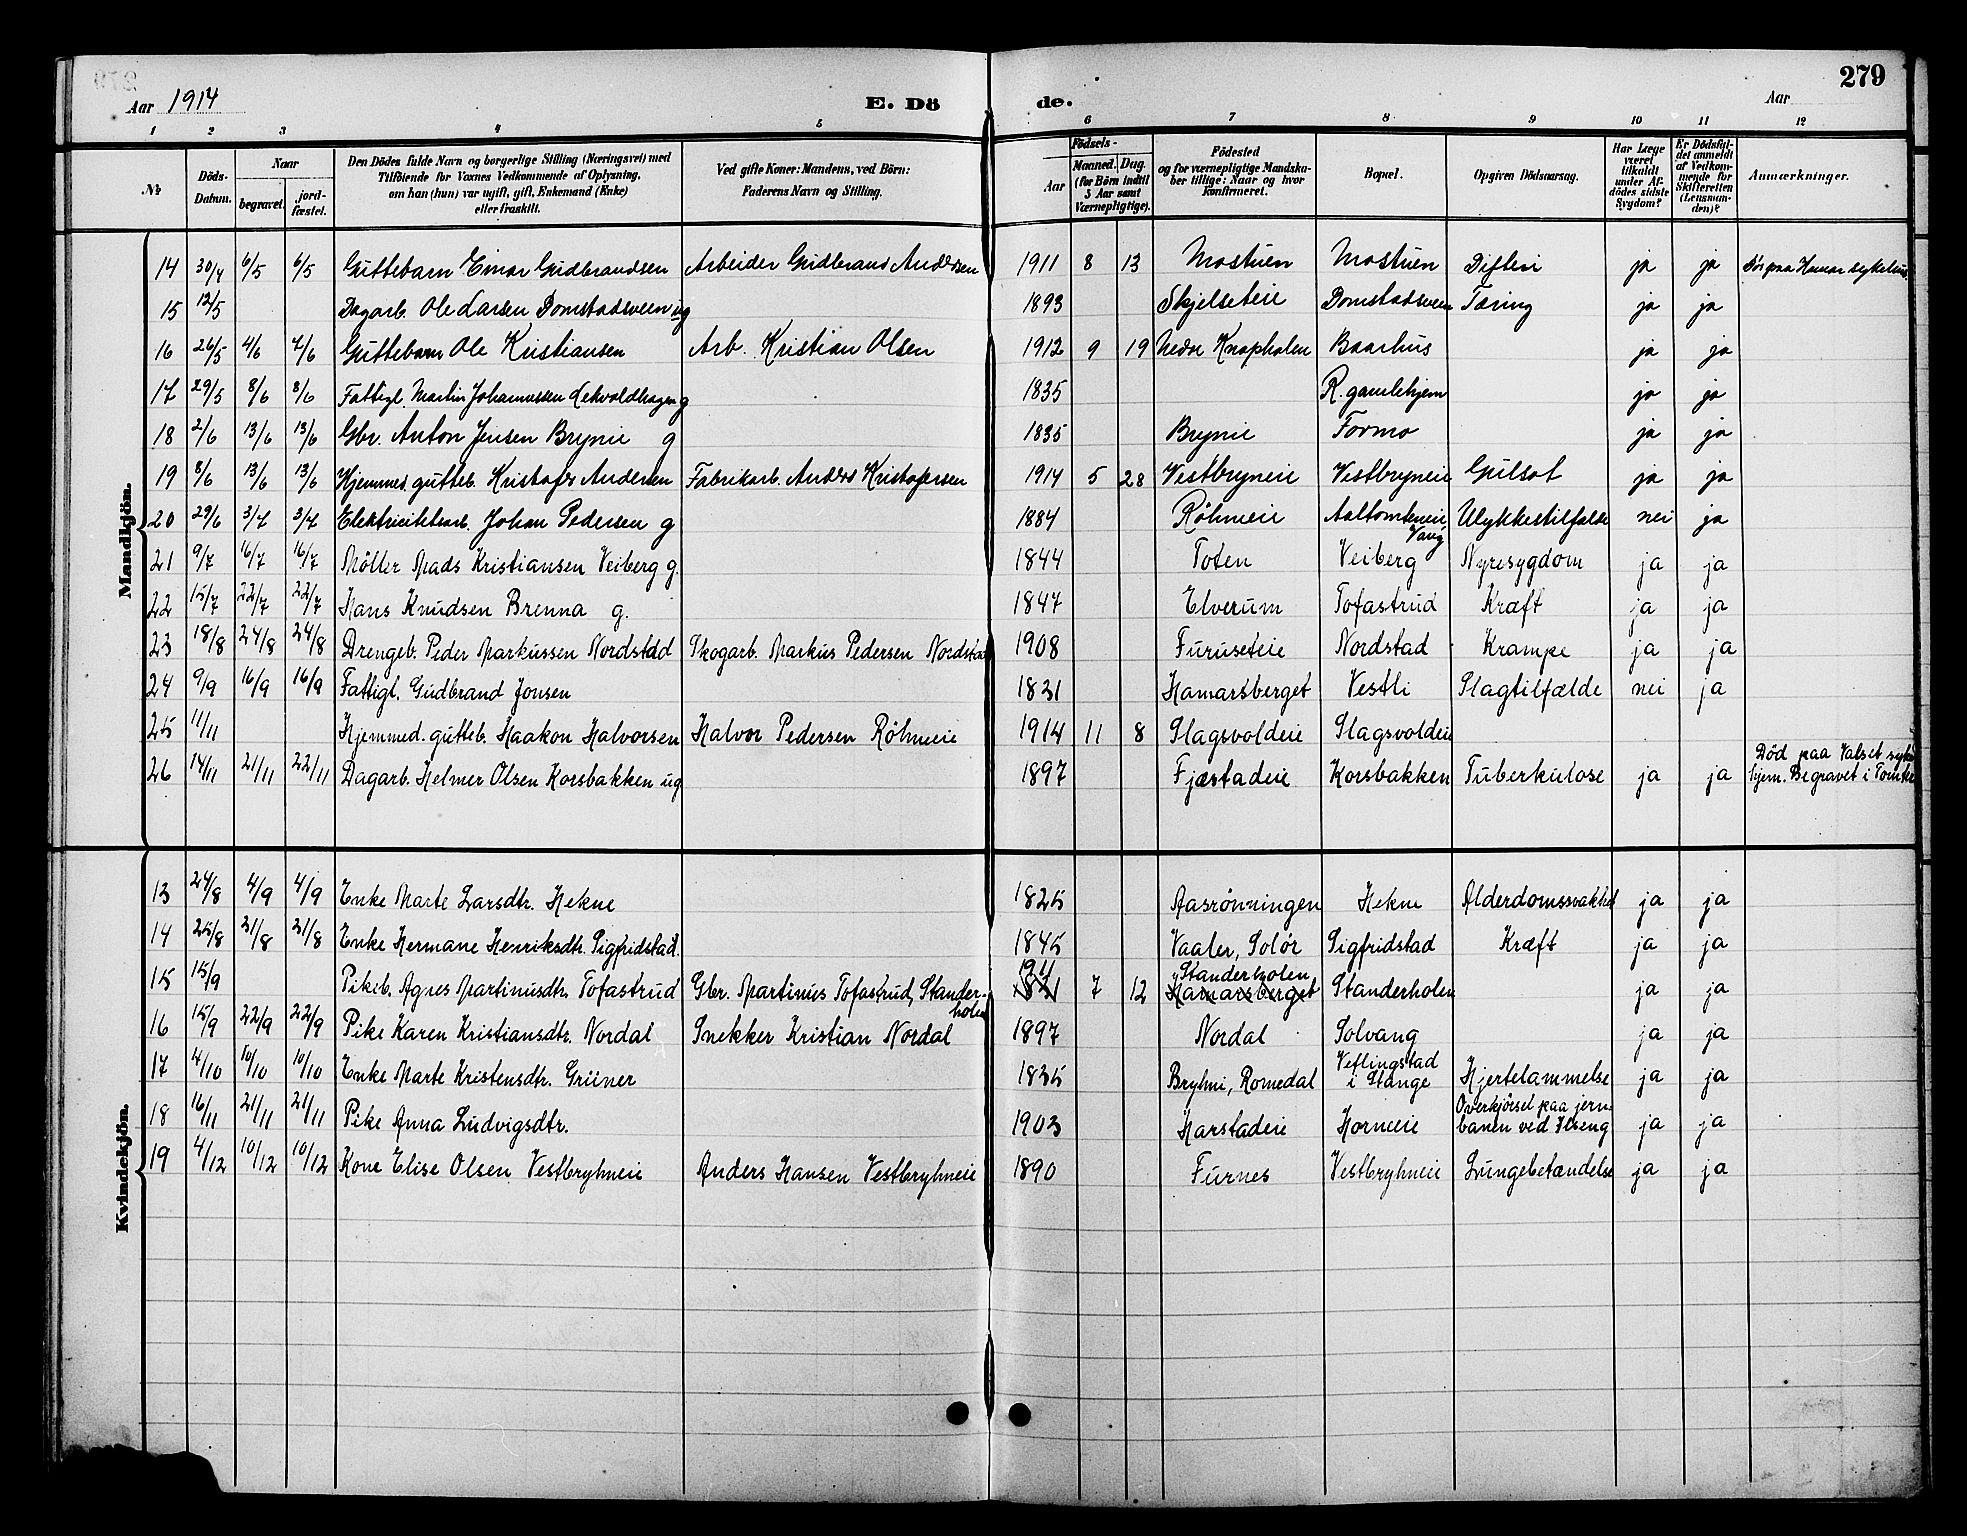 279
Aar 1914 E. Dö de. Aar
1 2 3 4 5 6 7 8 9 10 11 12
№ Döds-Datum. Naar begravet. jordfæstet. Den Dödes fulde Navn og borgerlige Stilling (Næringsvei) med Tilföiende for Voxnes Vedkommende af Oplysning, om han (hun) var ugift, gift, Enkemand (Enke) eller fraskilt. Ved gifte Koner: Mandens, ved Börn: Faderens Navn og Stilling. Födsels- Aar Maaned. Dag. (for Börn indtil 5 Aar samt Værnepligtige). Födested og for værnepligtige Mandskaber tillige: Naar og hvor konfirmeret. Bopæl. Opgiven Dödsaarsag. Har Læge været tilkaldt under Afdödes sidste Sygdom? Er Dödsfaldet anmeldt af Vedkommende for Skifteretten (Lensmanden)? Anmærkninger.
Mandkjön.
14 30/4 6/5 6/5 Guttebarn Einar Gudbrandsen Arbeider Gudbrand Andersen 1911 8 13 Mostuen Mostuen Difteri ja ja Dör paa Hamar sykehus
15 12/5 Dagarb. Ole Larsen Domstadsveen ug 1893 Skjelseteie Domstadsveen Tæring ja ja
16 26/5 4/6 4/6 Guttebarn Ole Kristiansen Arb. Kristian Olsen 1912 9 19 Nedre Knapholen Baarhus ja ja
17 29/5 8/6 8/6 Fattigl. Martin Johannessen g 1835 R. gamlehjem ja ja
18 2/6 13/6 13/6 Gbr. Anton Jensen Brynie g 1835 Brynie Formo ja ja
19 8/6 13/6 13/6 Hjemmed. gutteb. Kristofer Andersen Fabrikarb. Anders Kristofersen 1914 5 28 Vestbryneie Vestbryneie Gulsot ja ja
20 29/6 3/7 3/7 Elektricitetsarb. Johan Pedersen g 1884 Röhneeie Aaltomteneie Vang Ulykkestilfælde nei ja
21 9/7 16/7 16/7 Möller Mads Kristiansen Veiberg g. 1844 Toten Veiberg Nyresygdom ja ja
22 15/7 22/7 22/7 Hans Knudsen Brenna g. 1847 Elverum Tofastrud Kræft ja ja
23 18/8 24/8 24/8 Drengeb. Peder Markussen Nordstad Skogarb. Markus Pedersen Nordstad 1908 Furuseteie Nordstad Krampe ja ja
24 9/9 16/9 16/9 Fattigl. Gudbrand Jonsen 1831 Hamarsberget Vestli Slagtilfælde nei ja
25 11/11 Hjemmed. gutteb. Haakon Halvorsen Halvor Pedersen Röhneie 1914 11 8 Slagsvoldeie Slagsvoldeie
26 14/11 21/11 22/11 Dagarb. Helmer Olsen Korsbakken ug 1897 Fjæstadeie Korsbakken Tuberkulose ja ja Död paa Valset syke
hjem. Begravet i Tomter
Kvindekjön.
13 24/8 4/9 4/9 Enke Marte Larsdtr. Hekne 1825 Aasrönningen Hekne Alderdomssvakhet ja ja
14 25/8 31/8 31/8 Enke Hermane Henriksdtr. Sigfridstad. 1845 Vaaler, Solör Sigfridstad Kræft ja ja
15 15/9 Pikeb. Agnes Martinusdtr. Tofastrud Gbr. Martinius Tofastrud, Stander-
holen 1911 1831 7 12 Standerholen, Hamarsberget Standerholen ja ja
16 15/9 22/9 22/9 Pike Karen Kristiansdtr. Nordal Snekker Kristian Nordal 1897 Nordal Solvang ja ja
17 4/10 10/10 10/10 Enke Marte Kristensdtr. Grüner 1835 Bryhni, Romedal Veflingstad i Stange Hjertelammelse ja ja
18 16/11 21/11 21/11 Pike Anna Ludvigsdtr. 1903 Harstadeie Horneie Overkjörsel paa jern-
banen ved Ilseng ja ja
19 4/12 10/12 10/12 Kone Elise Olsen Vestbryhneie Anders Hansen Vestbryhneie 1890 Furnes Vestbryhneie Lungebetændelse ja ja